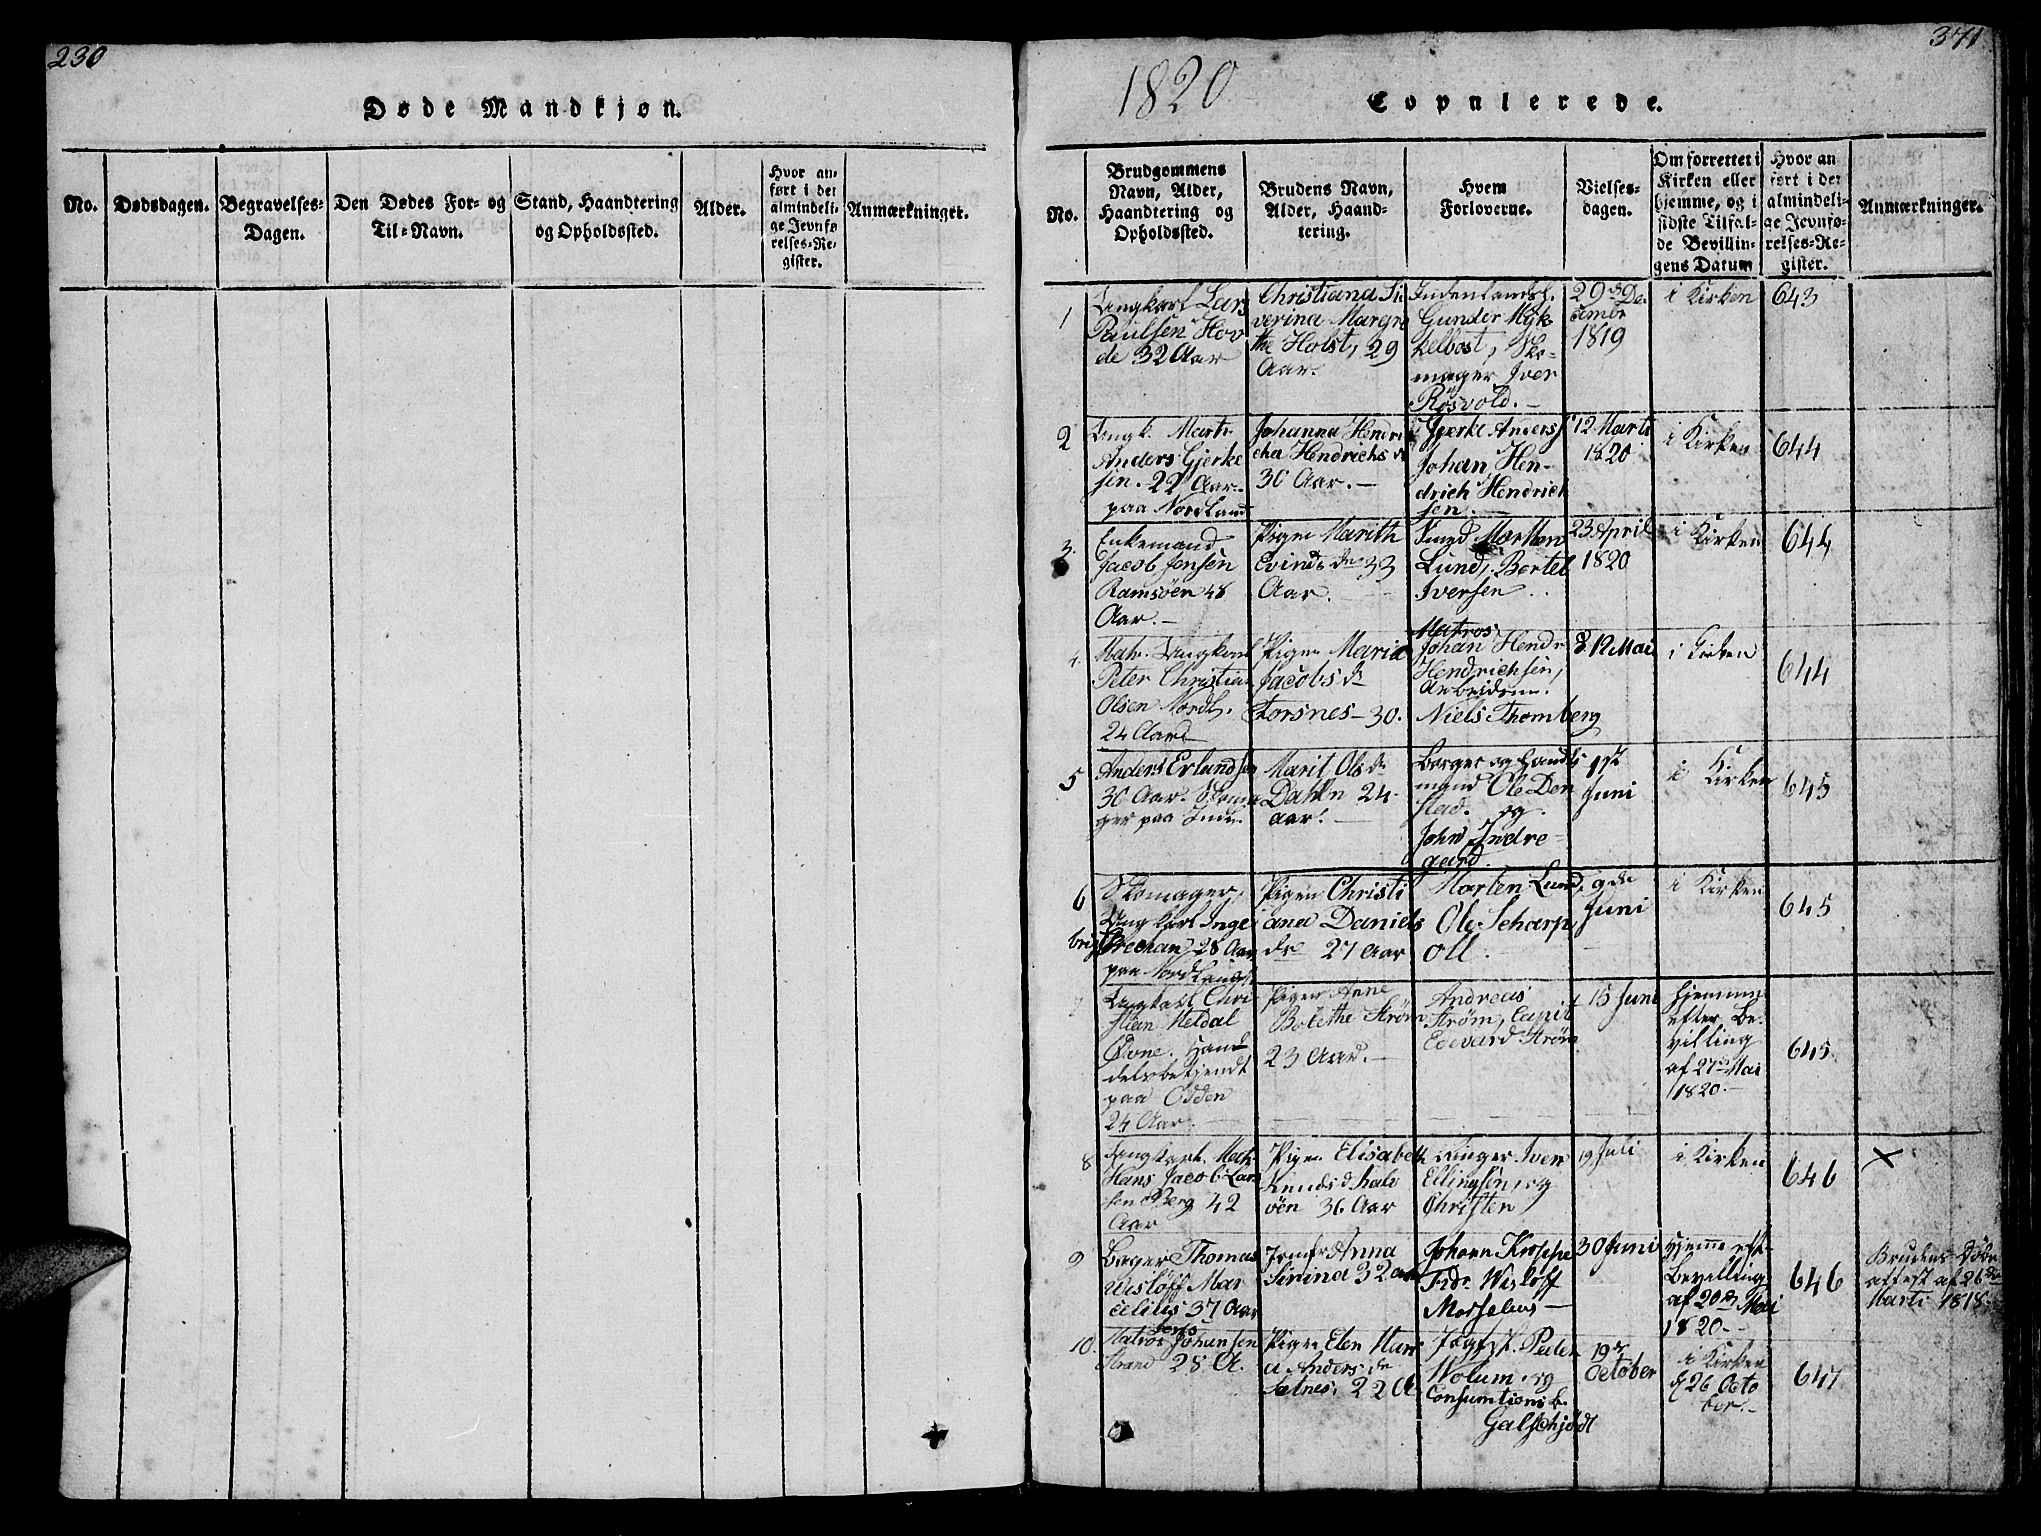 230
Døde Mandkjøn.
No.
Dødsdagen.
Begravelses-
Dagen.
Den Dødes For- og
Til-Navn.
Stand, Haandtering
og Opholdssted.
Alder.
Hvor an-
ført i det
almindeli-
ge Jevnfø-
relses-Re-
gister.
Anmærkninger.
371
1820
Copulerede.
No.
Brudgommens
Navn, Alder,
Haandtering og
Opholdssted.
Brudens Navn,
Alder, Haand-
tering.
Hvem
Forloverne.
Vielses-
dagen.
Om forrettet i
Kirken eller
hjemme, og i
sidste Tilfæl-
de Bevillin-
gens Datum
Hvor an
ført i det
almindeli-
ge Jevnfø-
relses-Re-
gister.
Anmærkninger.
1
Ungkarl Lars
Paulsen Hov
de 32 Aar
Christiana Si
verina Margre
the Holst, 29
Aar.
Gunder Myk-
kelbost, Sko-
mager Iver
Røsvold. -
29 De
cembr
1819
i Kirken
643
2
Ungk. Matr
Anders Gjerke
sen. 22 Aar.
paa Nordland
Johanna Hendri
cha Hendrichs d
30 Aar. -
Gjerke Anders
Johan Hen-
drich Hendrich
sen.
12 Marts
1820
i Kirken
644
3.
Enkemand
Jacob Jensen
Ramsöen 48
Aar. -
Pigen Marith
Evinds de 33
Aar.
Morten
Lund, Bertel
Iversen
23 April
1820
i Kirken
644
4.
Matr. Ungkarl
Peter Christia
Olsen Nordl.
24 Aar
Pigen Maria
Jacobs d
Torsnes - 30.
Matros
Johan Hendr
Hendrichsen,
Arbeidsm.
Niels Thomberg
d. 12 Mai
i Kirken
644
5
Anders Erlandsen
30 Aar. Skoma
ger paa
Marit Ols d
Dahln 24
aar. -
Borger og Handls
mand Ole Den
stad. og
John Indre-
gaard
1st
Juni
i Kirken
645
6
Skomager,
Ungkarl Inge
brigt Brechan 28 Aar
paa Nordlandet
Pigen Christi
ana Daniels
dr 27 Aar
Morten Lund,
Ole Scharp
oll.
9de
Juni
i Kirken
645
7
Ungkarl Chri
stian Meldal
Owne. Han
delsbetjendt
paa Odden
24 Aar.
Pigen Anne
Bolethe Strøm
23 Aar. -
Andreas
Strøm, Capit
Edevard Strøm
15 Juni
hjemme
efter Be-
villing
af 27 Mai
1820. -
645
8
Ungkarl. Matr
Hans Jacob Lar
sen Berg 42
Aar
Pigen Elisabeth
Knuds d Kalv
öen 36 Aar
Iver
Ellingsen, og
Christen
19 Juli
i Kirken
646
x
9
Bager Thomas
Wisløff Mar
celius 37 Aar
Jomfr Anna
Sirina 32 aar
Johann Knoppe
Frdr Wisløff
Marselius -
30 Juni
Hjemme eft-
Bevilling
af 20 Mai
1820. -
646
Brudens Døbe
attest af 26de
Marts 1818.
10.
Matros Johansen
Strand 28 A.
Pigen Elen Mar
a Anders dr
Sætnes, 22 A.
Peder
Wolum, og
Consumtions b.
Galschjødt
19
October
i Kirken
d 26 Octo
ber. -
647